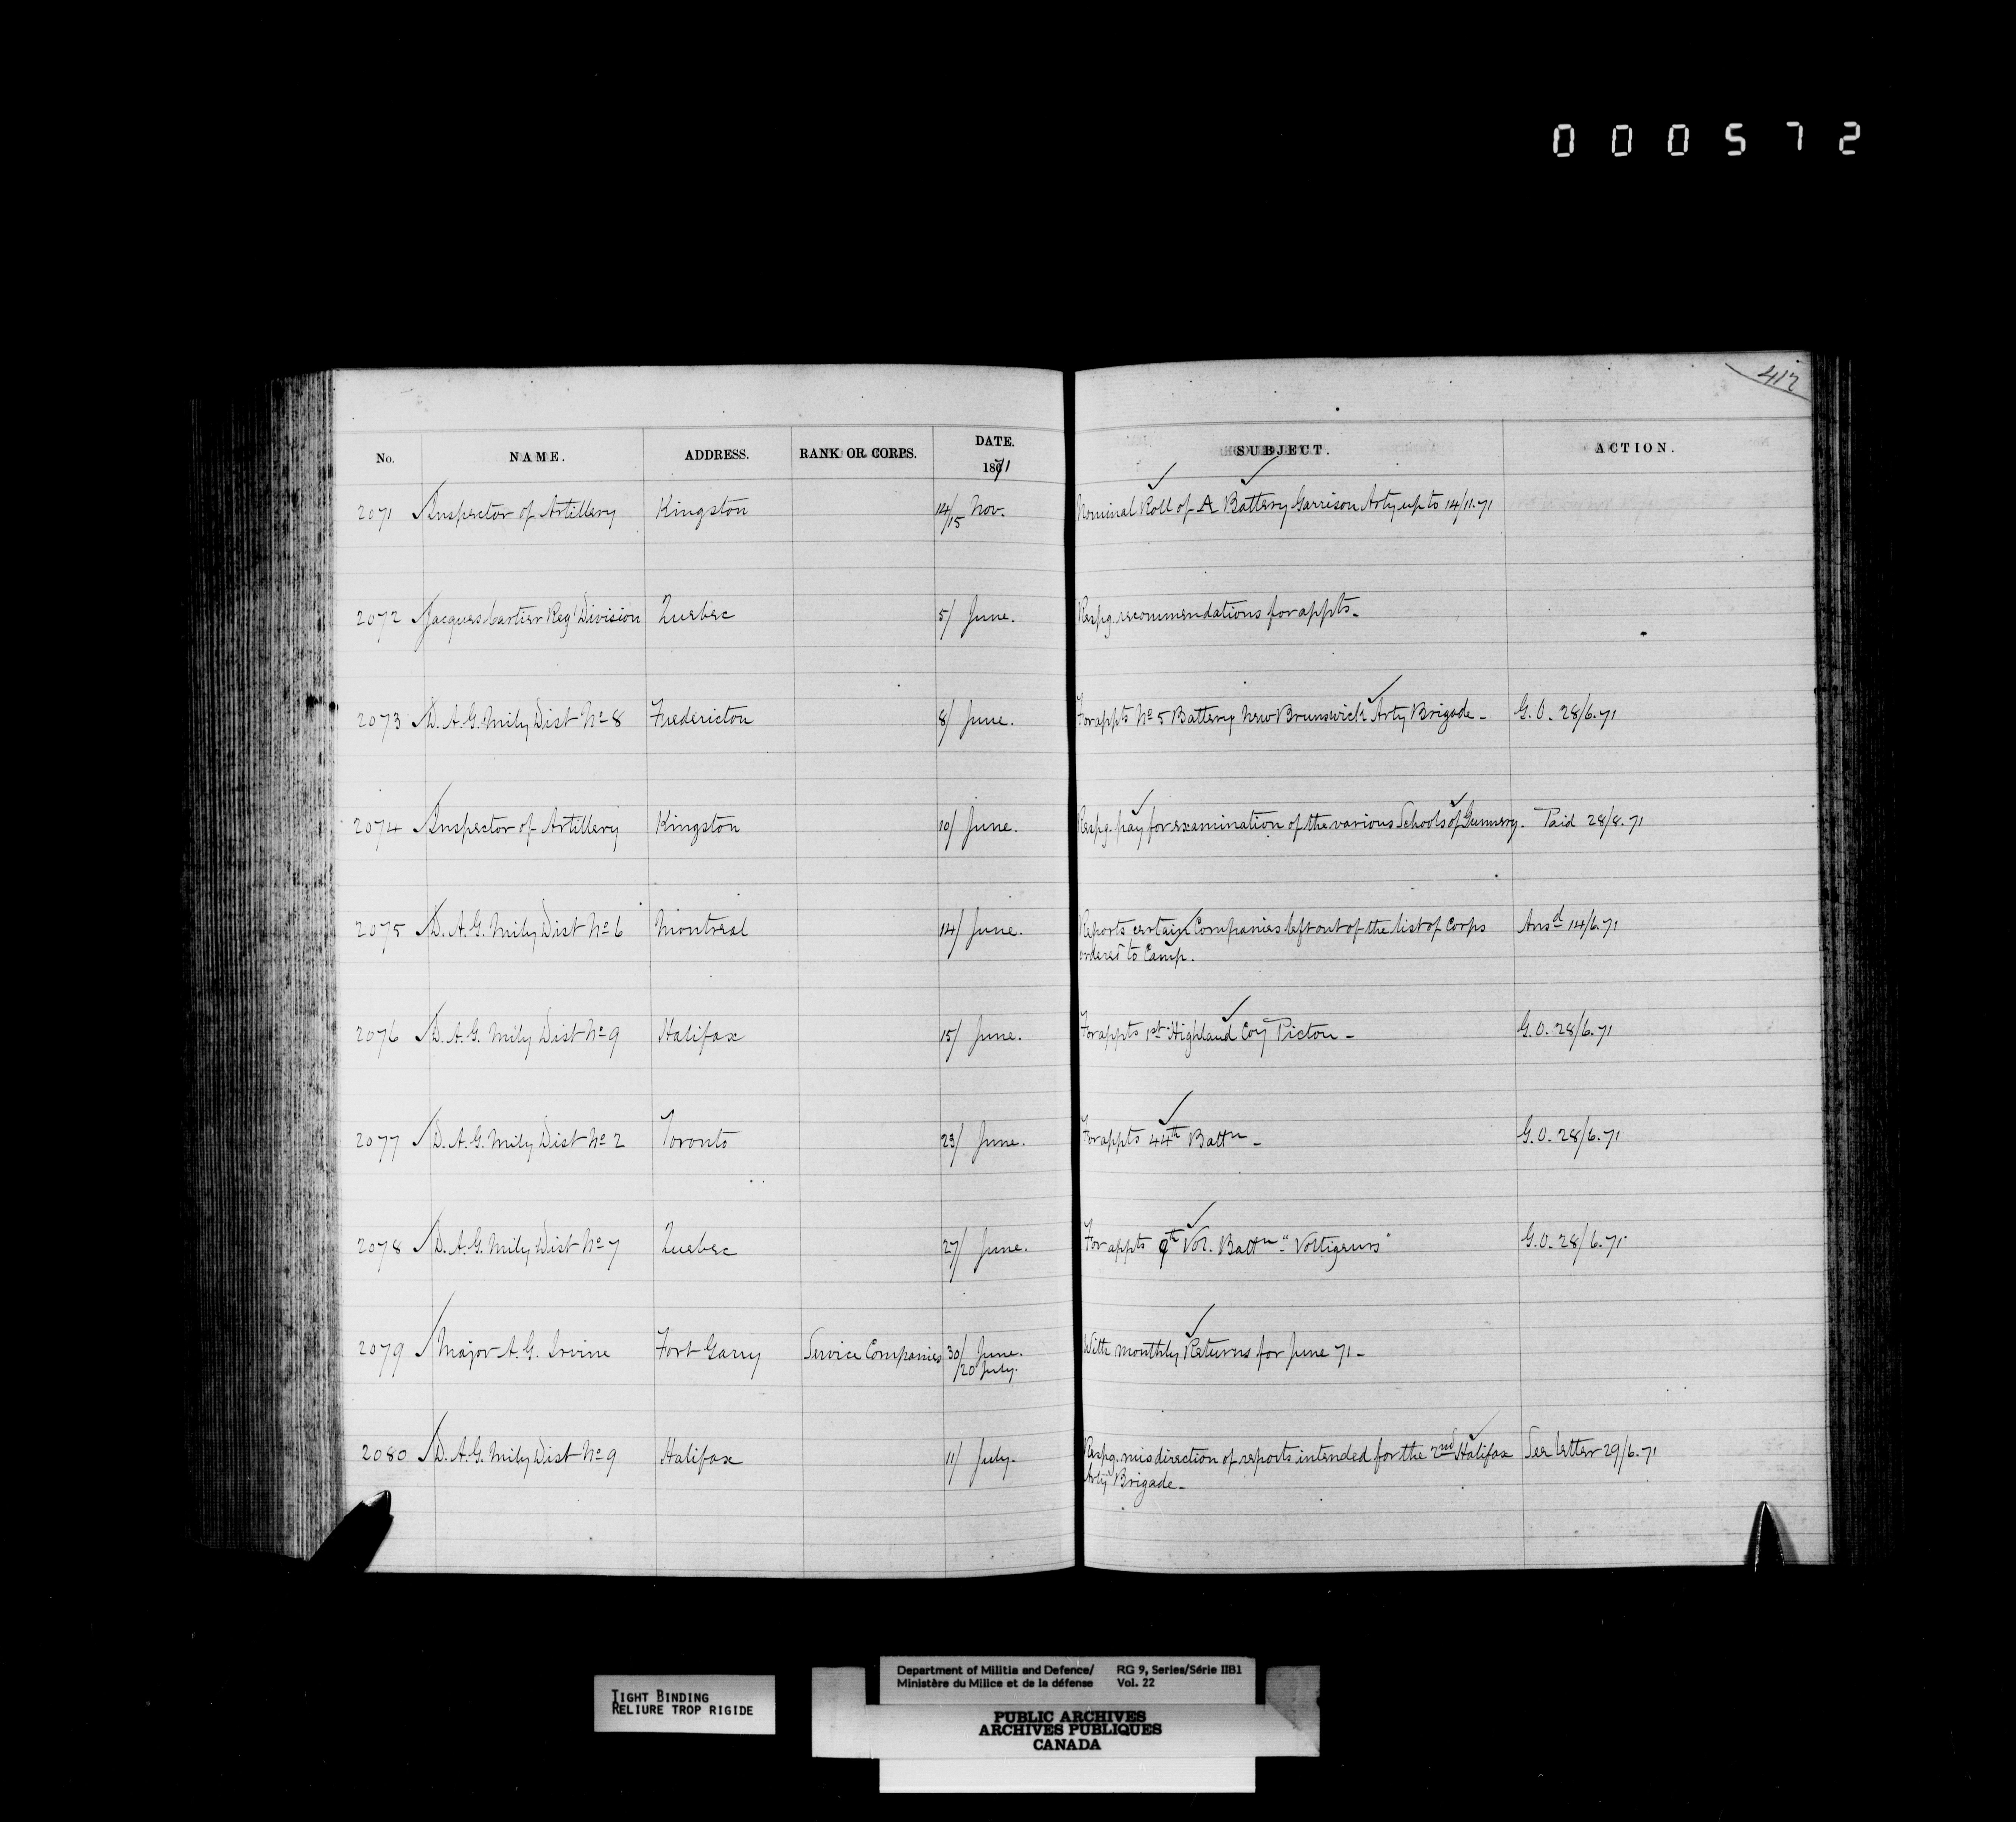 000572
412
No. NAME. ADDRESS. RANK OR CORPS. DATE. 1871 SUBJECT. ACTION.
2071 Inspector of Artillery Kingston 14/15 Nov. Nominal Roll of A Battery Garrison Arty up to 14/11.71
2072 Jacques Cartier Regl Division Quebec 5/ June. Respg. recommendations for appts.
2073 D.A.G. Mily Dist No 8 Fredericton 8/ June. For appts No 5 Battery New Brunswick Arty Brigade. G.O. 28/6.71
2074 Inspector of Artillery Kingston 10/ June. Respg. pay for examination of the various Schools of Gunnery. Paid 28/8.71
2075 D.A.G. Mily Dist No 6 Montreal 14/ June. Reports certain Companies left out of the list of Corps Ansd 14/6.71
ordered to Camp.
2076 D.A.G. Mily Dist No 9 Halifax 15/ June. For appts 1st Highland Coy Pictou - G.O. 28/6.71
2077 D.A.G. Mily Dist No 2 Toronto 23/ June. For appts 44th Battn - G.O. 28/6.71
2078 D.A.G. Mily Dist No 7 Quebec 27/ June. For appts 9th Vol. Battn. "Voltigeurs" G.O. 28/6.71
2079 Major A.G. Irvine Fort Garry Service Companies 30/ June. With monthly Returns for June 71 -
/20 July.
2080 D.A.G. Mily Dist No 9 Halifax 11/ July. Respg. misdirection of reports intended for the 2nd Halifax See letter 29/6.71
Arty Brigade -
TIGHT BINDING
RELIURE TROP RIGIDE
Department of Militia and Defence/ RG 9, Series/Série IIB1
Ministère du Milice et de la défense Vol. 22
PUBLIC ARCHIVES
ARCHIVES PUBLIQUES
CANADA